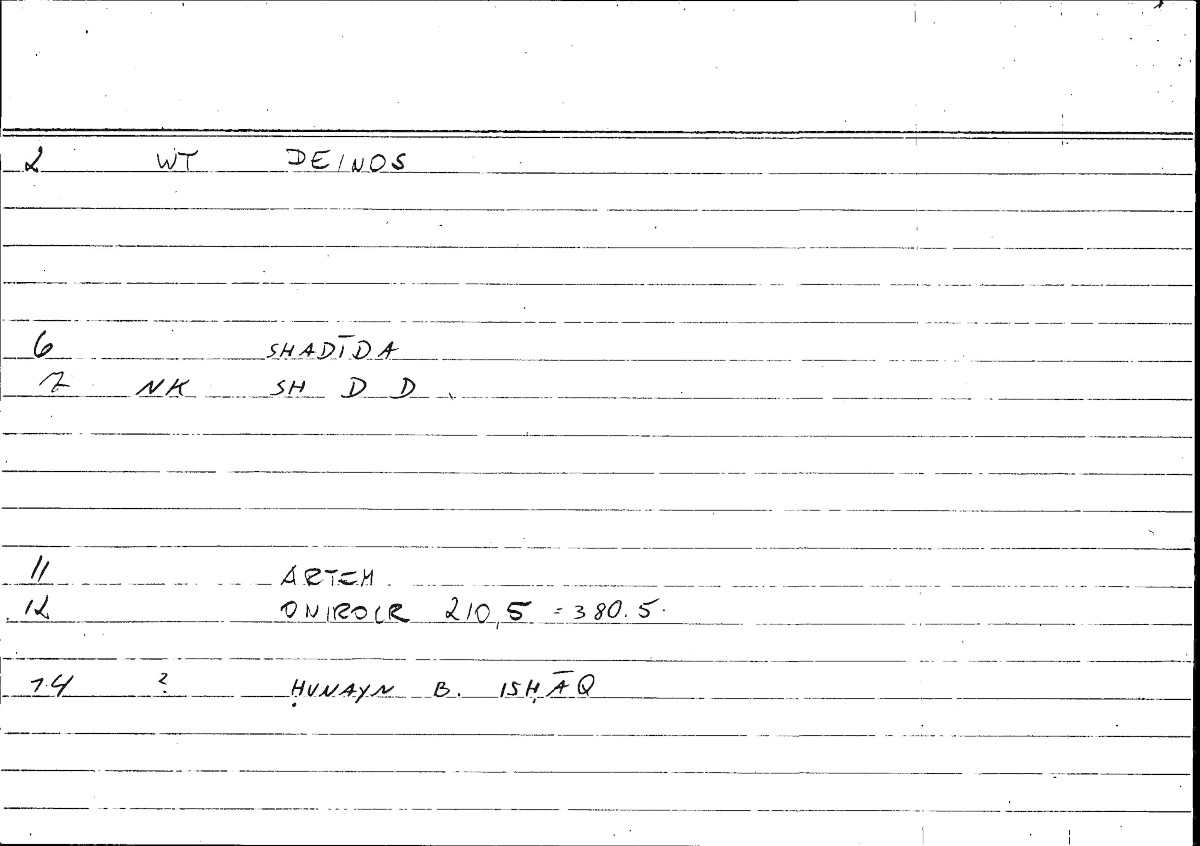 2 WT DEINOS
6 SHADĪDA
7 NK SH D D
11 ARTEM.
12 ONIROCR 210,5 = 380.5.
14 ? ḤUNAYN B. ISḤĀQ